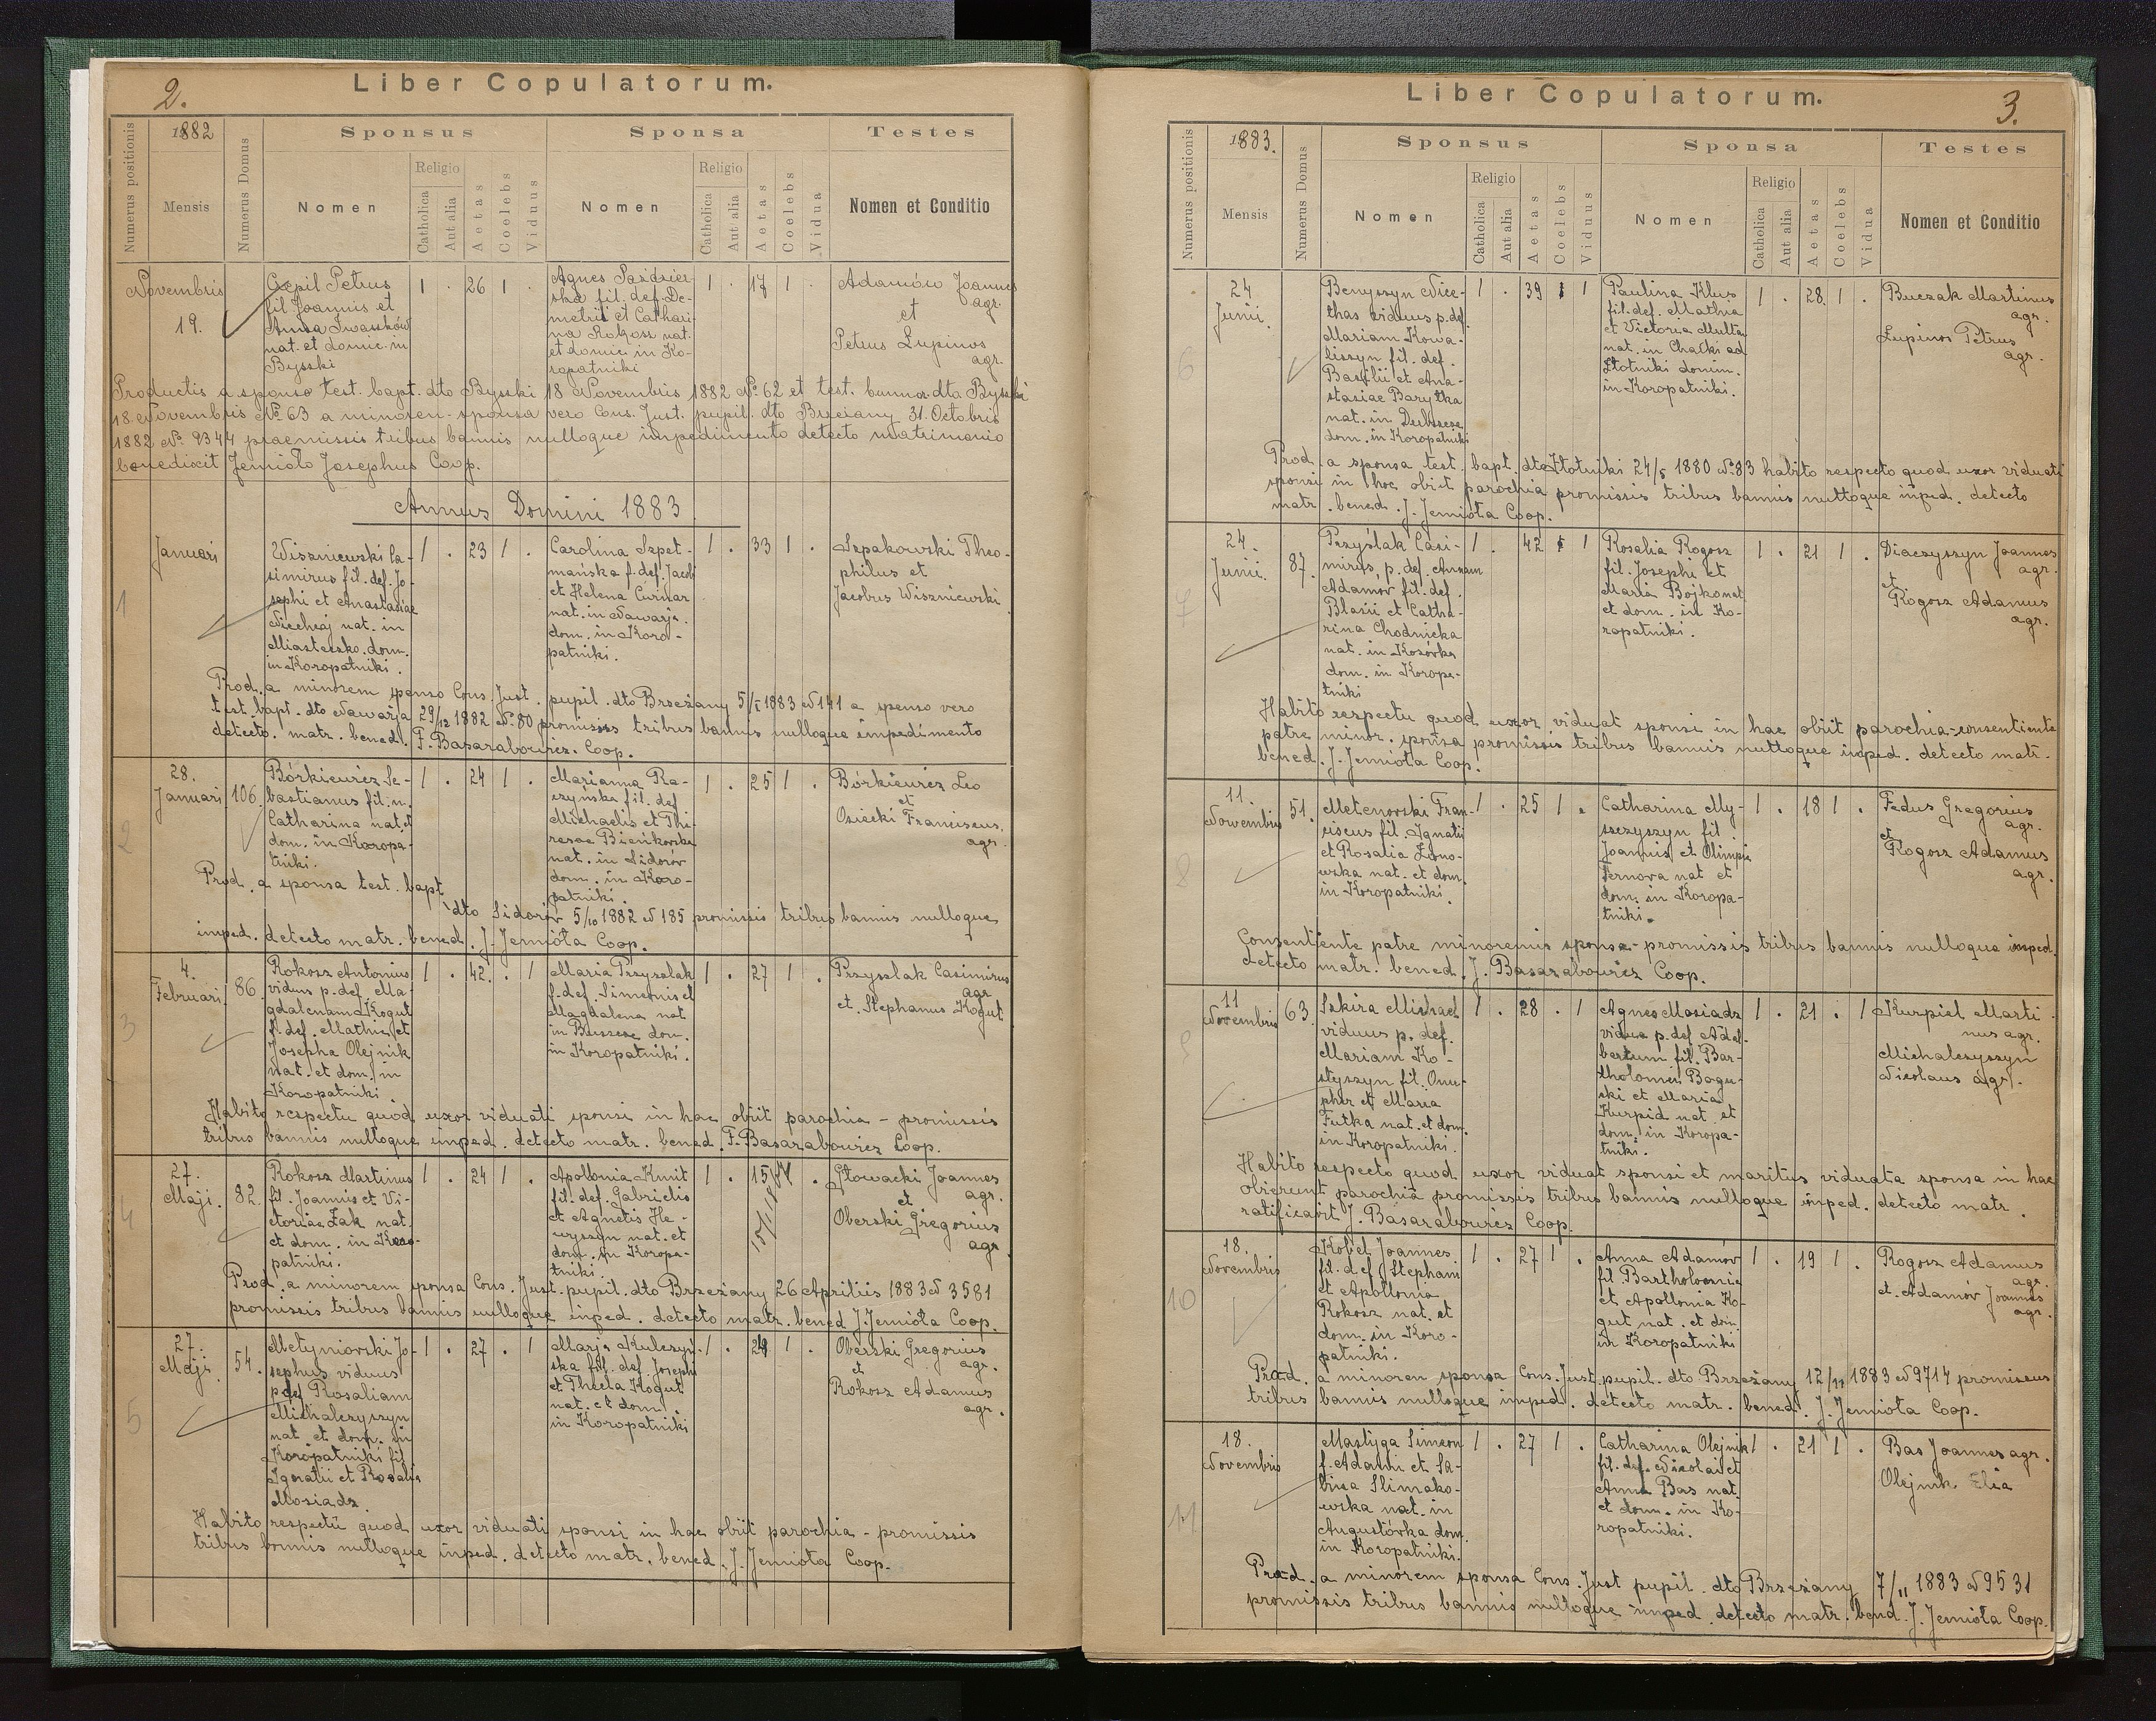 2.
Liber Copulatorum.
Numerus positionis
1882
Mensis
Numerus Domus
Sponsus
Nomen
Religio
Catholica
Aut alia
Aetas
Coelebs
Viduus
Sponsa
Nomen
Religio
Catholica
Aut alia
Aetas
Coelebs
Vidua
Testes
Nomen et Conditio
Novembris
19.
Cepil Petrus
fil. Joannis et
Anna Iwasków
nat. et domic. in
Byszki
1 . 26 1 .
Agnes
ska fil. def. De-
metrii et Cathari-
na Rokosz nat.
et domic. in Ko-
ropatniki
1 . 17 1 .
Adamów Joannes
agr.
et
Petrus Lupinos
agr.
Productis a sponso test. bapt. dto Byszki 18 Novembris 1882 No. 62 et test. bannor. dto Byszki
18 Novembris No. 63 a minoren. sponsa vero Cons. Just. pupil. dto Brzeżany 31. Octobris
1882 No. 9344 praemissis tribus bannis nulloque impedimento detecto matrimonio
benedixit Jemioło Josephus Coop.
Annus Domini 1883
Januari
1
Wiszniewski Ca-
simirus fil. def. Jo-
sephi et Anastasiae
Niechaj nat. in
Miasteczko dom.
in Koropatniki.
1 . 23 1 .
Carolina Szpet-
mańska f. def. Jacobi
et Helena
nat. in Nawarja.
dom. in Koro-
patniki.
1 . 33 1 .
Szpakowski Theo-
philus et
Jacobus Wiszniewski
Prod. a minorem sponso Cons. Just. pupil. dto Brzeżany 5/I 1883 N 141 a sponso vero
test. bapt. dto Nawarja 29/12 1882 No. 80 promissis tribus bannis nulloque impedimento
detecto. matr. bened. F. Basarabowicz. Coop.
28.
Januari
106.
2
Bórkiewicz Se-
bastianus fil. n.
Catharina nat. et
dom. in Koropa-
tniki.
1 . 24 1 .
Marianna Ra-
czyńska fil. def
Michaelis et The-
resae Bieńkowska
nat. in Sidorów
dom. in Koro-
patniki.
1 . 25 1 .
Bórkiewicz Leo
et
Osiecki Franciscus.
agr.
Prod. a sponsa test. bapt
dto Sidorów 5/10 1882 N 185 promissis tribus bannis nulloque
imped. detecto matr. bened. J. Jemioła Coop.
4.
Februari
86.
3
Rokosz Antonius
viduus p. def. Ma-
gdalenam Kogut
f. def. Mathia et
Josepha Olejnik
nat. et dom. in
Koropatniki.
1 . 42 . 1
Maria Przyszlak
f. def. Simeonis et
Magdalena nat
in Buszcze dom.
in Koropatniki.
1 . 27 1 .
Przyszlak Casimirus
agr.
et Stephanus Kogut
Habito respectu quod uxor viduati sponsi in hac obiit parochia – promissis
tribus bannis nulloque imped. detecto matr. bened. F. Basarabowicz Coop.
27.
Maji.
82.
4
Rokosz Martinus
fil. Joannis et Vi-
ctoriae Żak nat.
et dom. in Koro-
patniki.
1 . 24 1 .
Apollonia Kmit
fil. def. Gabrielis
et Agnetis He-
wyszyn nat. et
dom. in Koropa-
tniki.
1 . 15
Głowacki Joannes
agr.
et
Oberski Gregorius
agr.
Prod. a minorem sponsa Cons. Just. pupil. dto Brzeżany 26 Apriliis 1883 N 3581
promissis tribus bannis nulloque imped. detecto matr. bened J. Jemioła Coop.
27.
Maji.
54.
5
Metyniowski Jo-
sephus viduus
p. def Rosaliam
Michalczyszyn
nat et dom. in
Koropatniki fil
Ignatii et Rosalia
Mosiadz.
1 . 27 . 1
Marja Kulczyń-
ska fil. def Josephi
et Thecla Kogut
nat. et dom.
in Koropatniki
1 . 24 1 .
Oberski Gregorius
agr.
et
Rokosz Adamus
agr.
Habito respectu quod uxor viduati sponsi in hac obiit parochia – promissis
tribus bannis nulloque imped. detecto matr. bened. J. Jemioła Coop.
3.
Liber Copulatorum.
Numerus positionis
1883.
Mensis
Numerus Domus
Sponsus
Nomen
Religio
Catholica
Aut alia
Aetas
Coelebs
Viduus
Sponsa
Nomen
Religio
Catholica
Aut alia
Aetas
Coelebs
Vidua
Testes
Nomen et Conditio
24.
Junii.
6
Benyszyn Nice-
thas viduus p. def.
Mariam Kowa-
liszyn fil. def.
Basilii et Ana-
stasiae Barytka
nat. in Dubszcze
dom. in Koropatniki
1 . 39 1
Paulina Klus
fil. def. Mathia
et Victoria Multa
nat. in Chatki ad
Złotniki domin.
in Koropatniki.
1 . 28. 1 .
Buczak Martinus
agr.
Lupinos Petrus
agr.
Prod. a sponsa test. bapt. dto Złotniki 24/5 1880 No 83 habito respecto quod uxor viduati
sponsi in hoc obiit parochia promissis tribus bannis nulloque imped. detecto
matr. bened. J. Jemioła Coop.
24.
Junii.
87.
7
Przyślak Casi-
mirus, p. def. Annam
Adamów fil. def.
Blasii et Catha-
rina Chodnicka
nat. in Kozówka
dom. in Koropa-
tniki
1 . 42 1
Rosalia Rogosz
fil. Josephi et
Maria Bojko nat
et dom. in Ko-
ropatniki.
1 . 21 1 .
Diaczyszyn Joannes
agr.
et
Rogosz Adamus
agr.
Habito respectu quod uxor viduat sponsi in hac obiit parochia – consentiente
patre minor. sponsa promissis tribus bannis nulloque imped. detecto matr.
bened. J. Jemioła Coop.
11.
Novembris
51.
8
Metenowski Fran-
ciscus fil. Ignatii
et Rosalia Zono-
wska nat. et dom.
in Koropatniki.
1 . 25 1 .
Catharina My-
szczyszyn fil.
Joannis et Olimpia
Ternova nat et
dom. in Koropa-
tniki.
1 . 18 1 .
Fedus Gregorius
agr.
et
Rogosz Adamus
agr.
Consentiente patre minorenis sponsa – promissis tribus bannis nulloque imped.
detecto matr. bened. J. Basarabowicz Coop.
11
Novembris
63.
Szkira Michael
viduus p. def.
Mariam Ko-
styszyn fil. Onu-
phir et Maria
Futka nat. et dom.
in Koropatniki.
1 . 28 . 1
Agnes Mosiadz
vidua p. def Adal-
bertum fil. Bar-
tholomei Bogu-
ski et Maria
Kurpid nat. et
dom. in Koropa-
tniki.
1 . 21 . 1
Kurpiel Marti-
nus agr.
Michalczyszyn
Nicolaus agr.
Habito respecto quod uxor viduat sponsi et maritus viduata sponsa in hac
obierunt parochia promissis tribus bannis nulloque imped. detecto matr.
ratificavit J. Basarabowicz Coop.
18.
Novembris
10
Kobel Joannes
fil. def Stephani
et Apollonia
Rokosz nat. et
dom. in Koro-
patniki.
1 . 27 1 .
Anna Adamów
fil Bartholomia
et Apollonia Ko-
gut nat. et dom.
in Koropatniki
1 . 19 1 .
Rogosz Adamus
agr.
et Adamów Joannes
agr.
Prod. a minoren sponsa Cons. Just. pupil. dto Brzeżany 12/11 1883 N 9714 promissis
tribus bannis nulloque imped. detecto matr. bened. J. Jemioła Coop.
18.
Novembris
11
Mastyga Simeon
f. Adami et Sa-
bina Slimako-
wska nat. in
Augustówka dom.
in Koropatniki.
1 . 27 1 .
Catharina Olejnik
fil. def. Nicolai et
Anna Bas nat.
et dom. in Ko-
ropatniki.
1 . 21 1 .
Bas Joannes agr.
Olejnik Elia
Prod. a minorem sponsa Cons. Just pupil. dto Brzeżany 7/11 1883 N 9531
promissis tribus bannis nulloque imped. detecto matr. bend. J. Jemioła Coop.